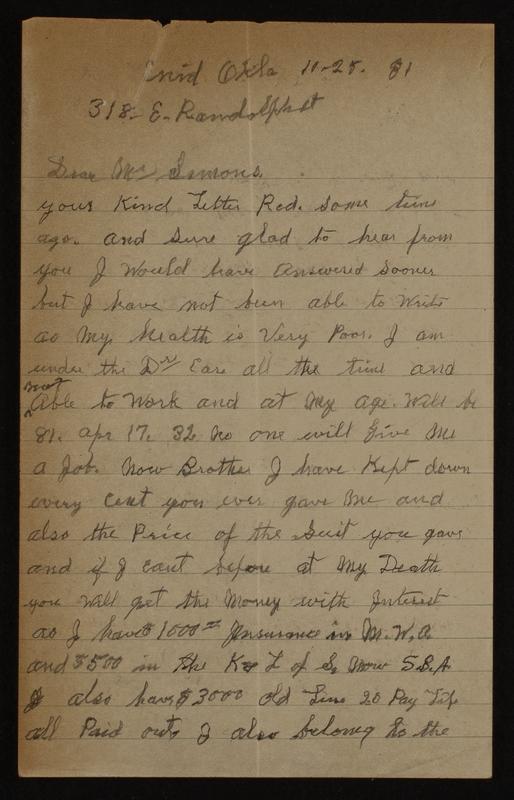 Enid Okla 10-25. 31
318- E- Randolph st
Dear Mr Simons.
your Kind Letter Red. some time
ago. and sure glad to hear from
you I Would have answered sooner
but I have not been able to Write
as My health is Very Poor. I am
under the Drs Care all the time and
not
Able to Work and at My age. Will be
81. apr 17. 32 no one will Give Me
a Job. Now Brother I have Kept down
every Cent you ever gave Me and
also the Price of the Suit you gave
and if I cant before at My Death
you Will get the Money with Interest
as I have $1000 00 Insurance in M.W.A
and $500 in the K & L of S. Now S.B.A
I also have $3000 old Line 20 Pay Life
all Paid out, I also belong to the